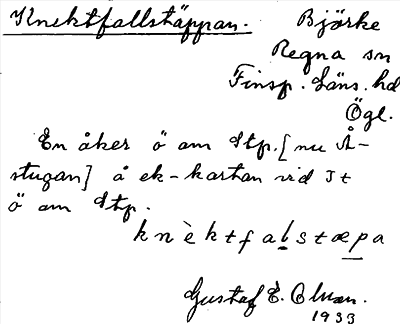 Knektfallstäppan. Björke
Regna sn
Finsp. läns. hd
Ögl.
En åker ö am Stp. [nu Å-
stugan] å ek-kartan vid It
ö am Stp.
knèktfalstæpa
Gustaf E.
1933